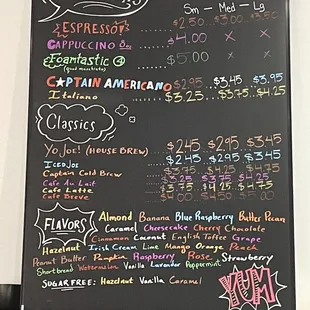 Sm — Med — Lg
ESPRESSO! $2.50 $3.00 $3.50
CAPPUCCINO 8oz $4.00 X X
Foamtastic $5.00 X X
(quad macchiato)
CAPTAIN AMERICANO $2.95 $3.45 $3.95
Italiano $3.25 $3.75 $4.25
Classics
Yo, Joe! (HOUSE BREW) $2.45 $2.95 $3.45
ICED JOE $2.45 $2.95 $3.45
Captain Cold Brew
Cafe Au Lait
Cafe Latte
Cafe Breve
FLAVORS
Almond Banana Blue Raspberry Butter Pecan
Caramel Cheesecake Cherry Chocolate
Cinnamon Coconut English Toffee Grape
Hazelnut Irish Cream Lime Mango Orange Peach
Peanut Butter Pumpkin Raspberry Rose Strawberry
Shortbread Watermelon Vanilla Lavender Peppermint
SUGAR FREE: Hazelnut Vanilla Caramel
YUM